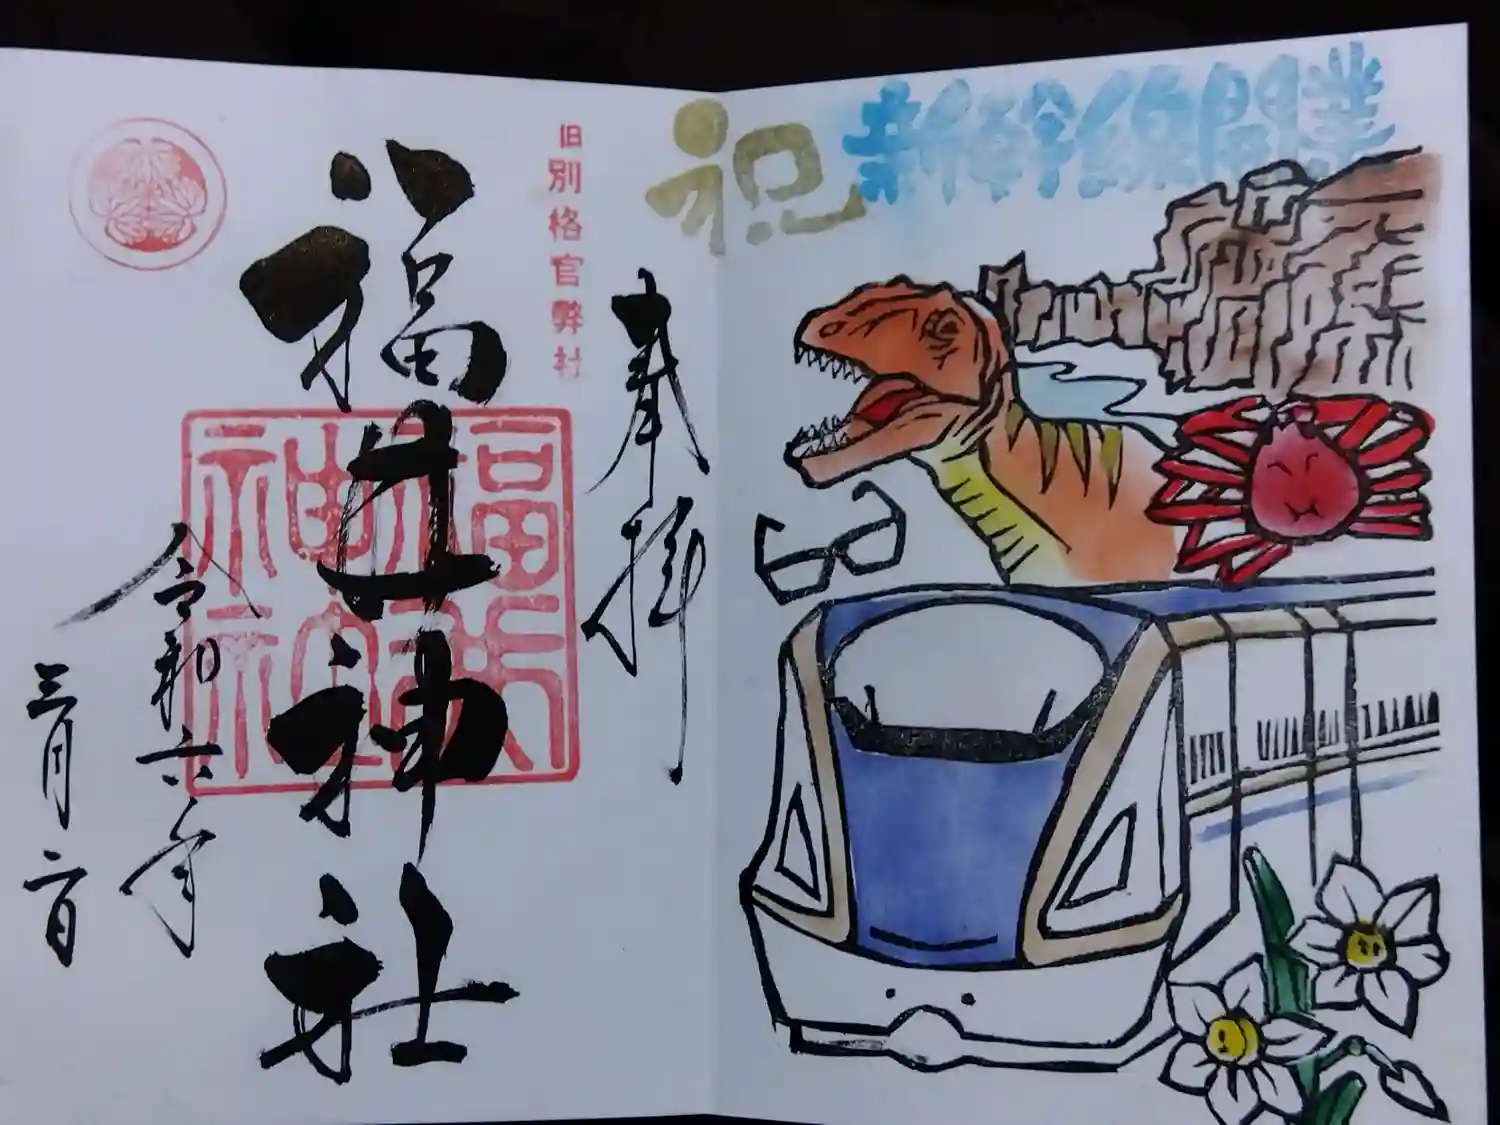 祝 新幹線開業
旧別格官弊社
奉拝
福井神社
福井神社
令和六年
三月二日